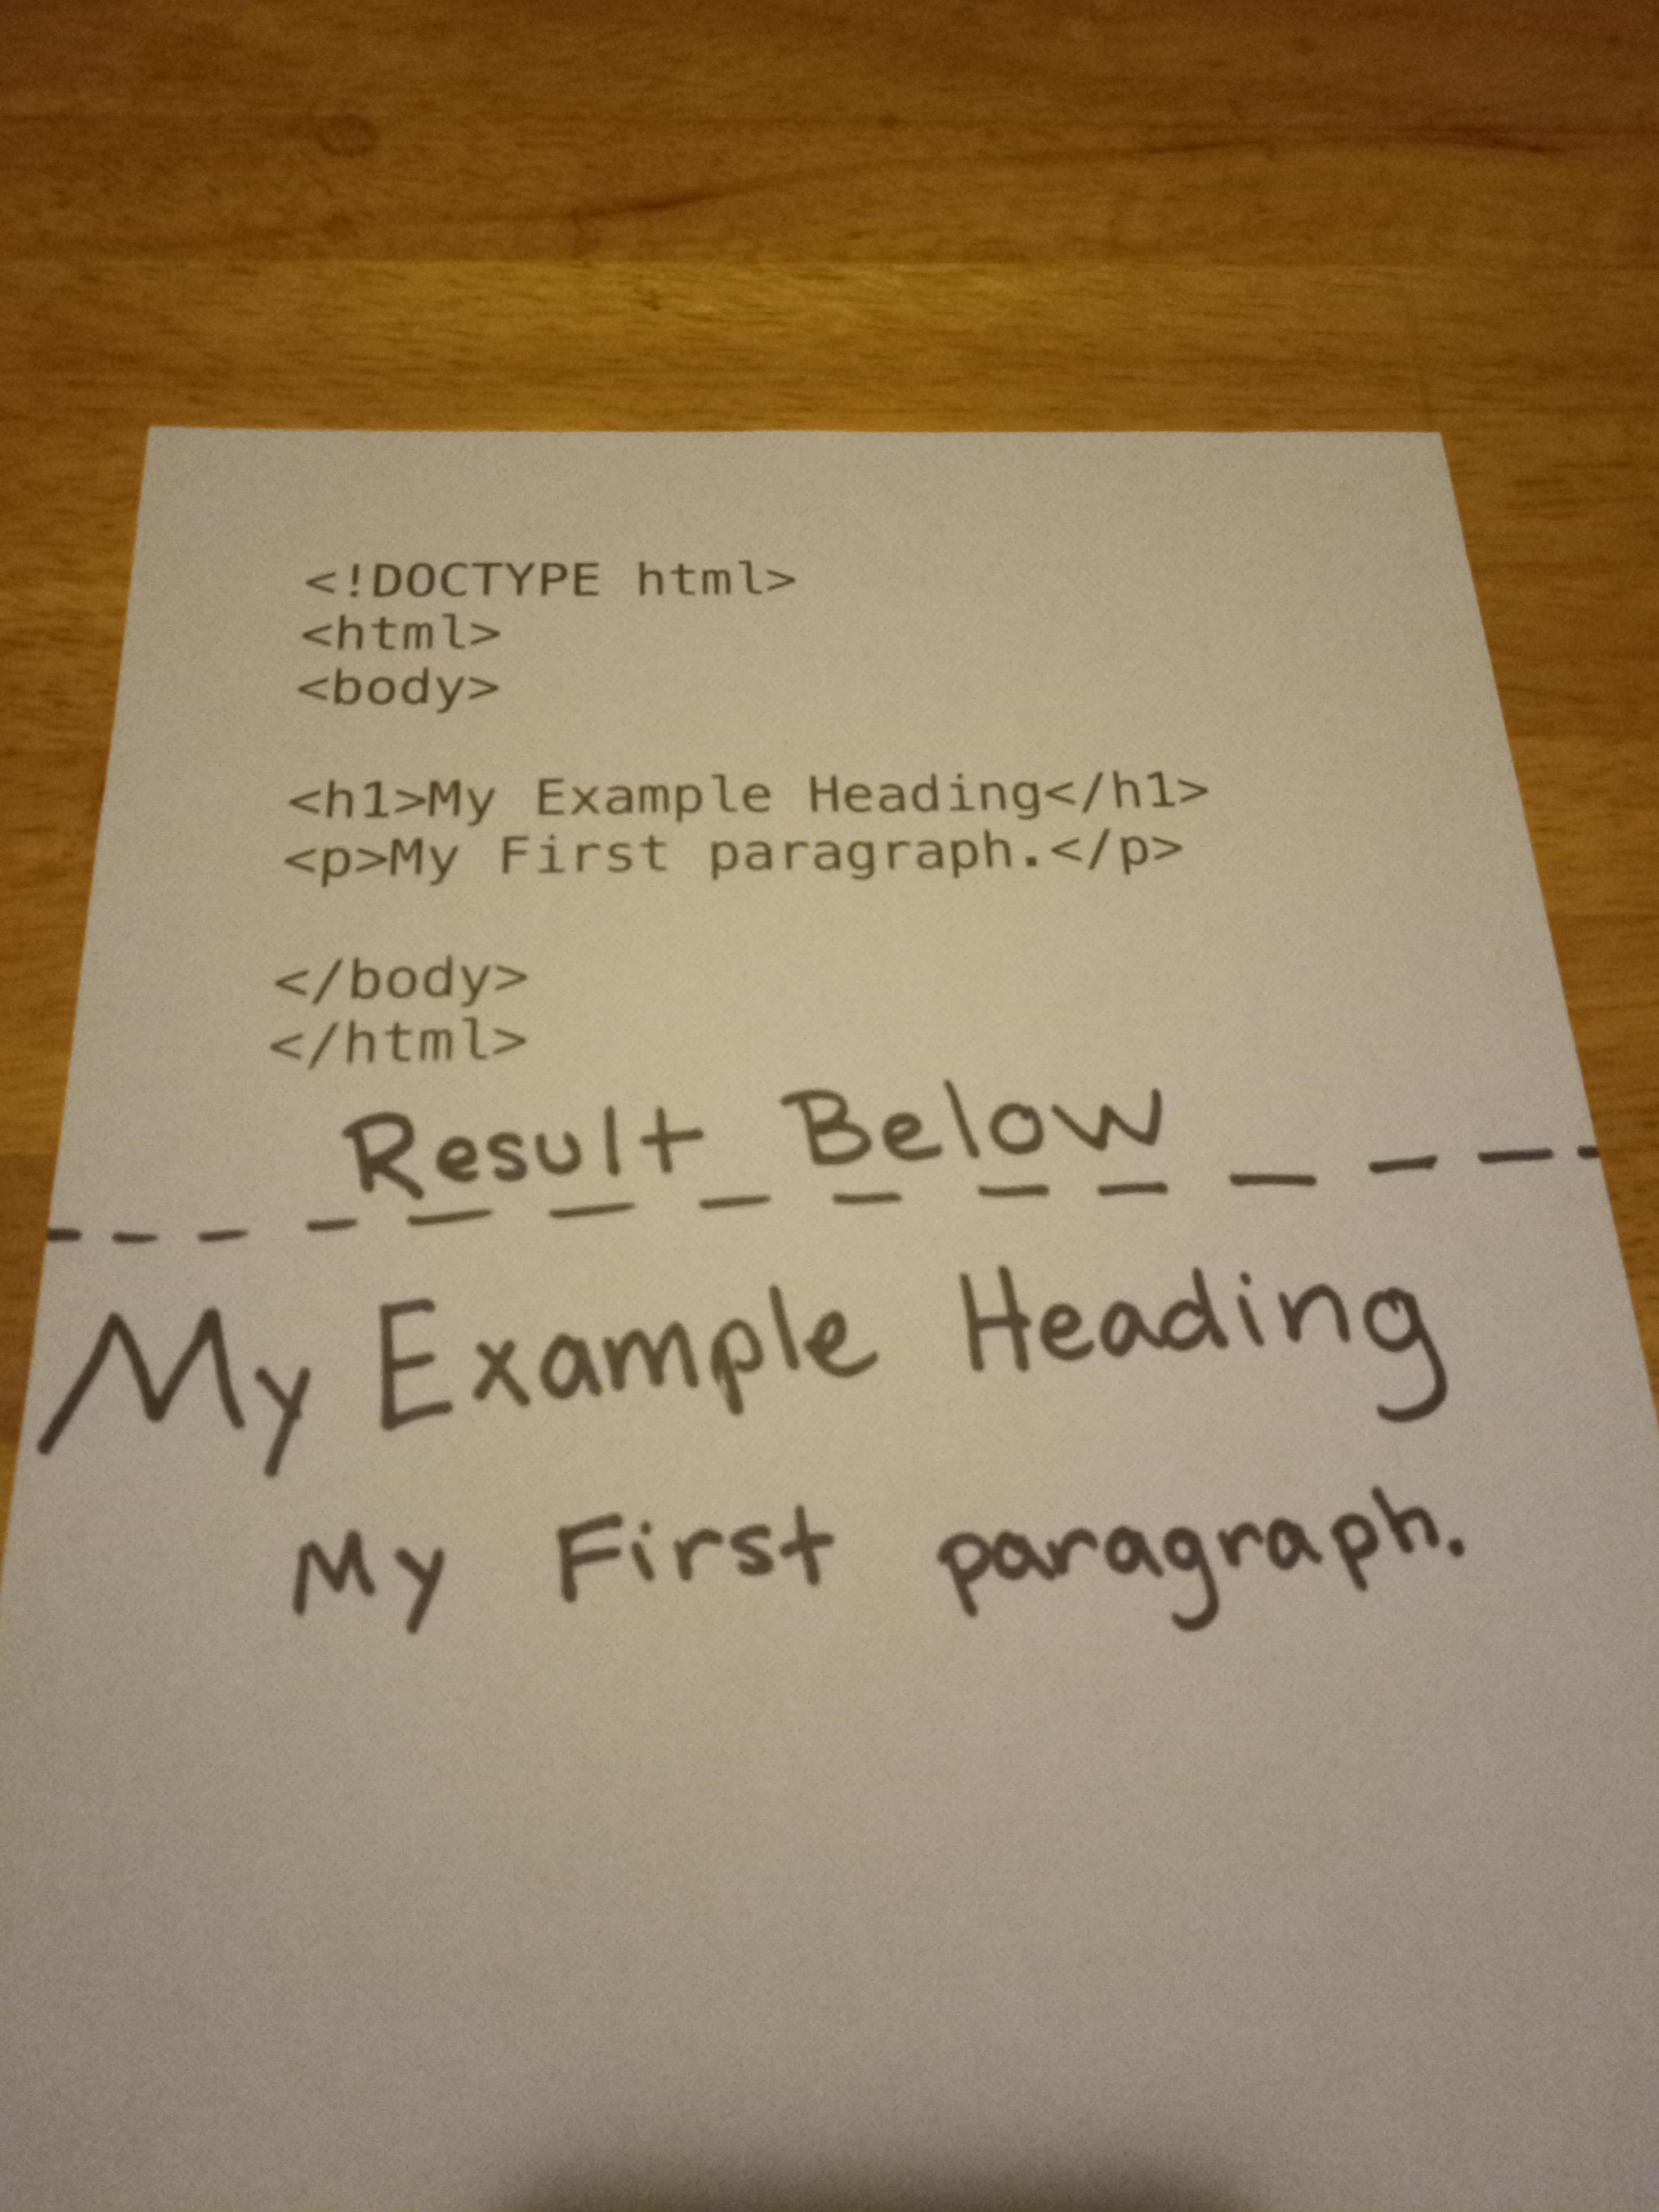 <!DOCTYPE html>
<html>
<body>
<h1>My Example Heading</h1>
<p>My First paragraph.</p>
</body>
</html>
Result Below
My Example Heading
My First paragraph.